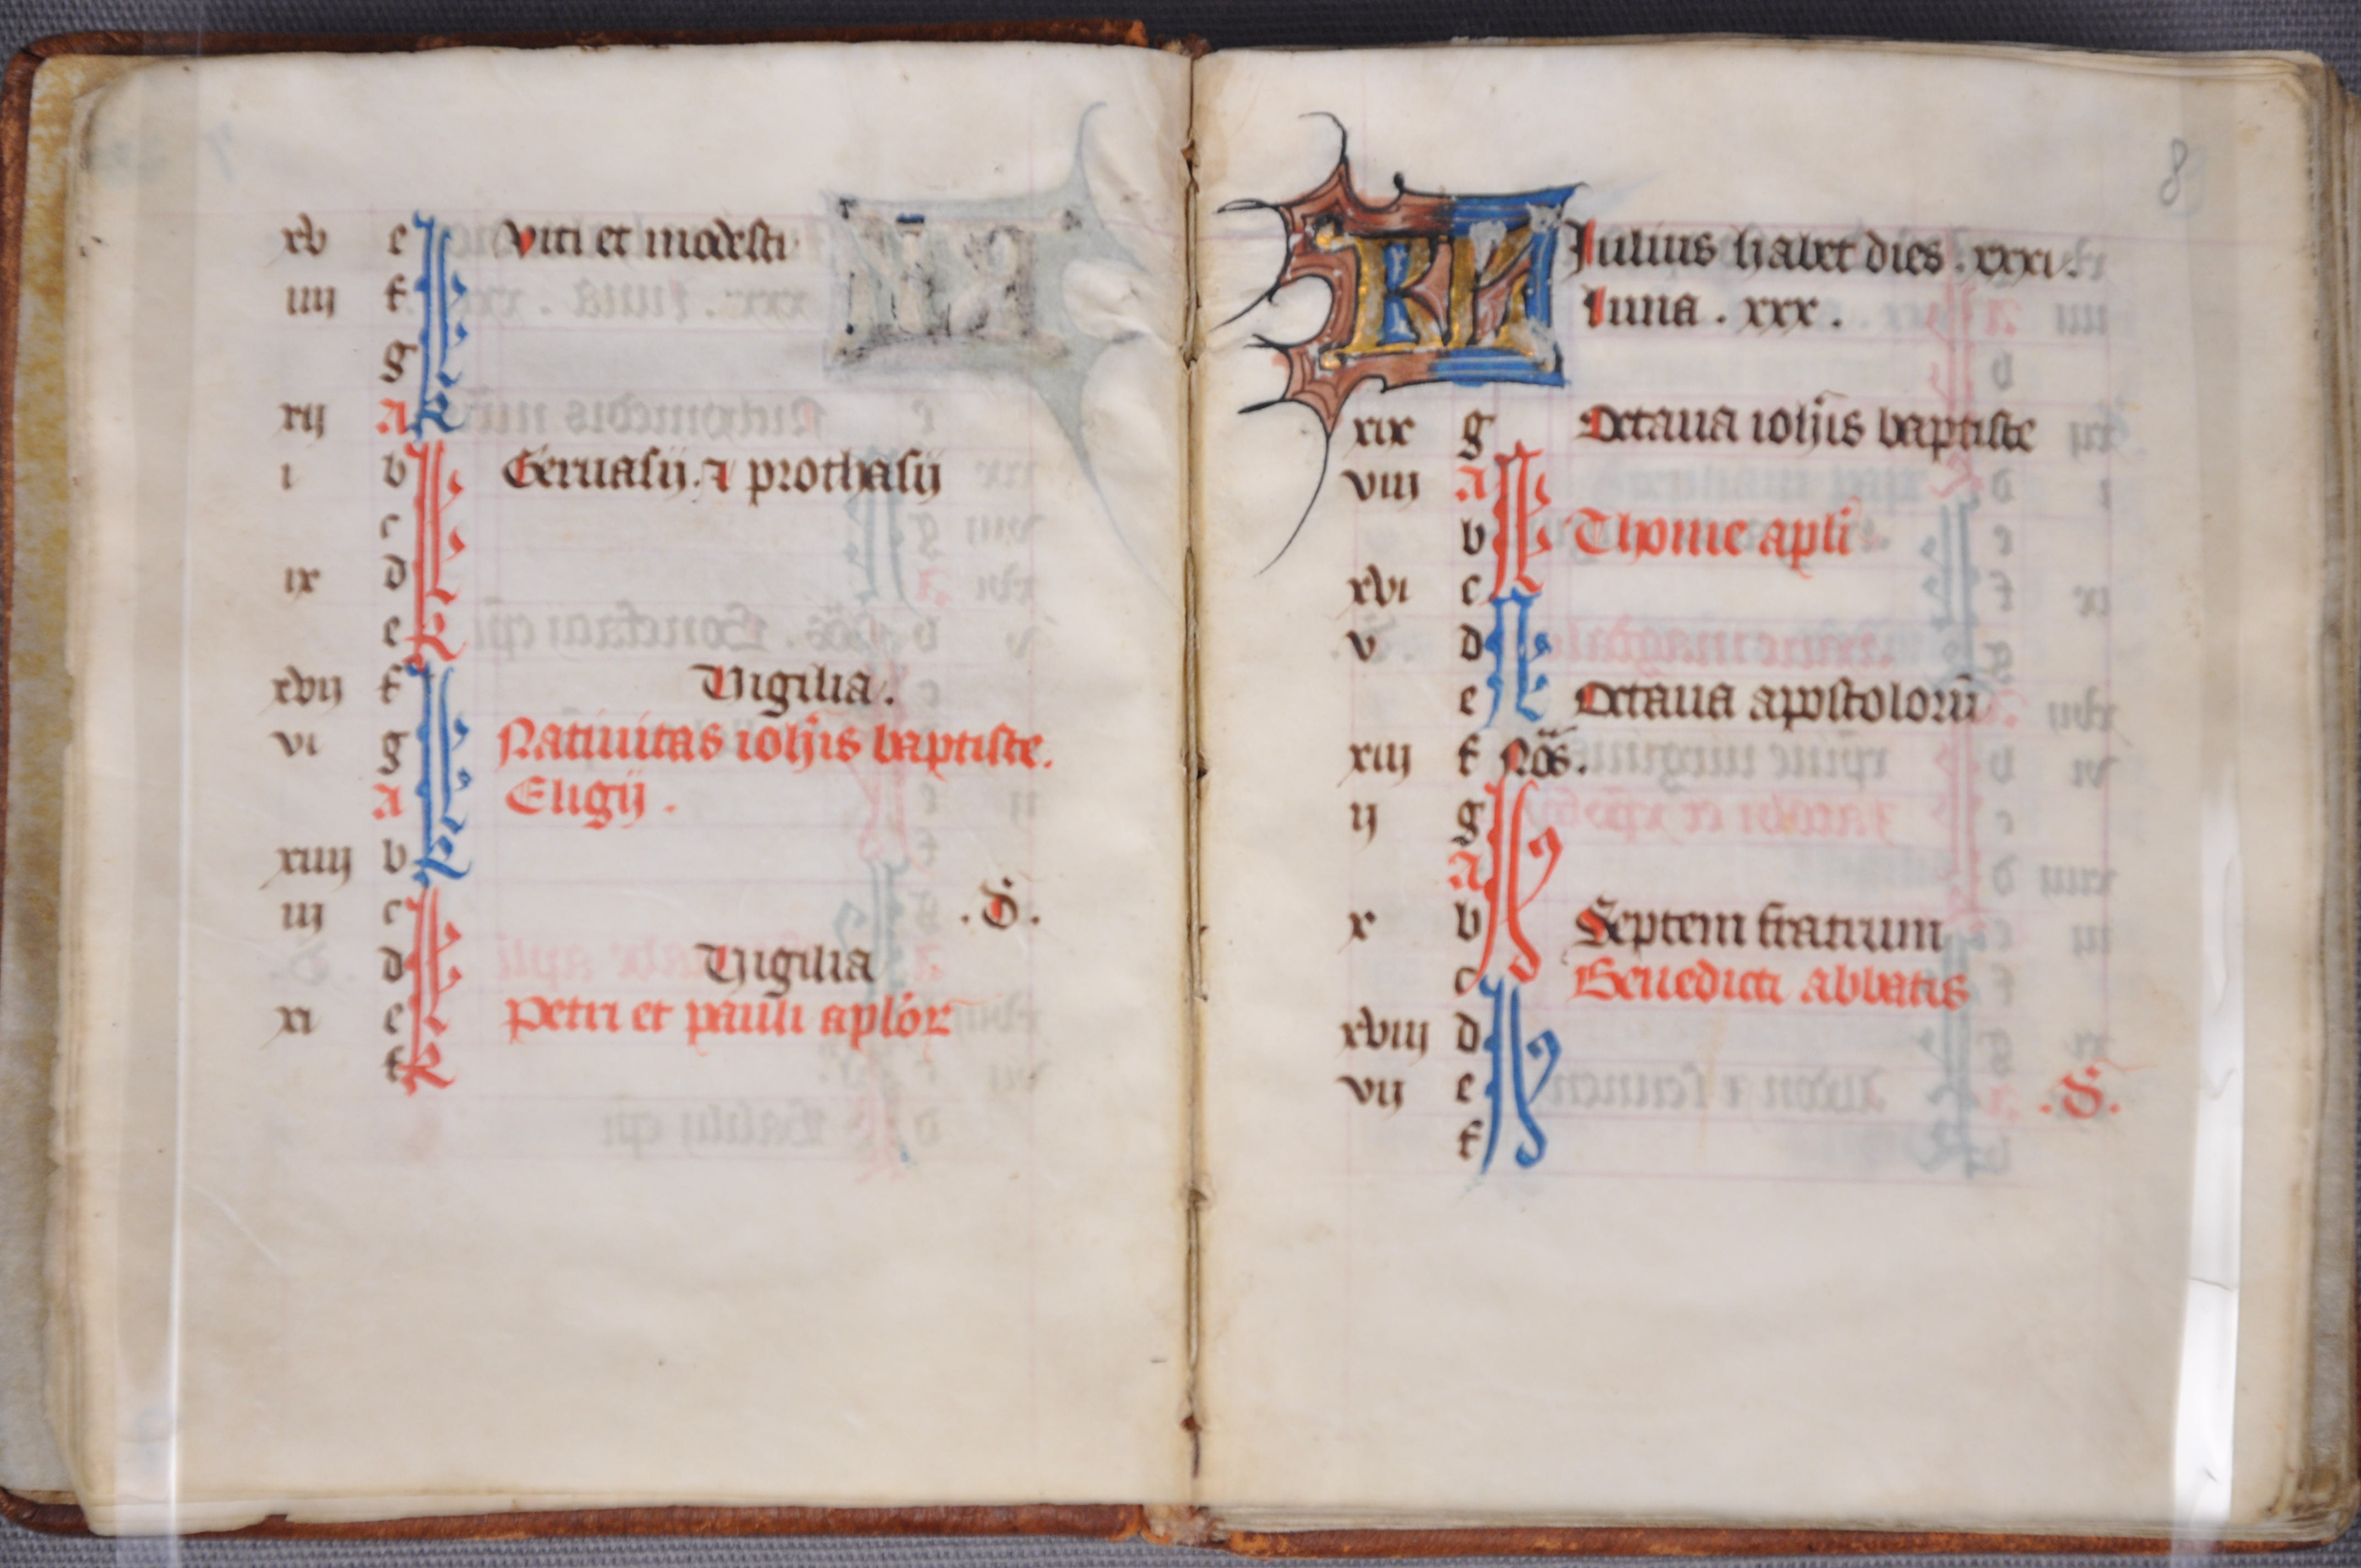 xv e viti et modesti
iiii f
g
xii A
i b Geruasii. ⁊ prothasii
c
ix d
e
xvii f Vigilia.
vi g Natiuitas ioh̄is baptiste.
A Eligii.
xiiii b
iii c .S.
d Vigilia
xi e Petri et pauli aplor
f
8
KL Iulius habet dies. xxxi.
luna. xxx.
xix g Octaua ioh̄is baptiste
viii A
b Thome apli
xvi c
v d
e Octaua apostolorū
xiii f Nos.
ii g
A
x b Septem fratrum
c Benedicti abbatis
xviii d
vii e .S.
f